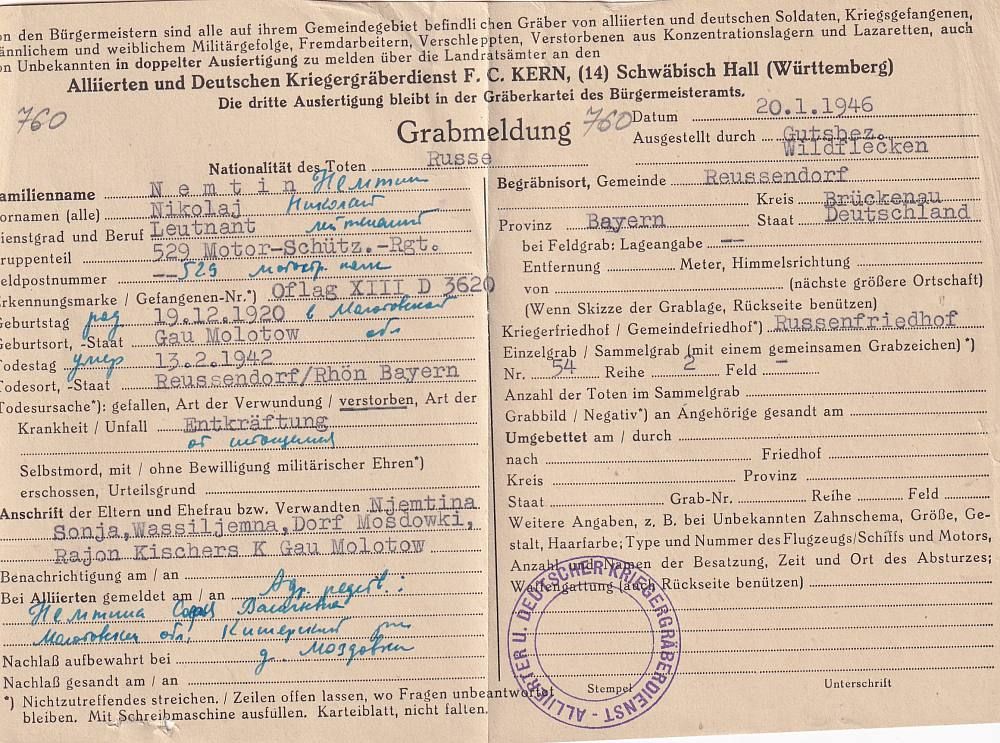 on den Bürgermeistern sind alle auf ihrem Gemeindegebiet befindlichen Gräber von alliierten und deutschen Soldaten, Kriegsgefangenen,
ännlichem und weiblichem Militärgefolge, Fremdarbeitern, Verschleppten, Verstorbenen aus Konzentrationslagern und Lazaretten, auch
on Unbekannten in doppelter Ausfertigung zu melden über die Landratsämter an den
Alliierten und Deutschen Kriegergräberdienst F. C. KERN, (14) Schwäbisch Hall (Württemberg)
Die dritte Ausfertigung bleibt in der Gräberkartei des Bürgermeisteramts.
760
Grabmeldung 760
Nationalität des Toten Russe
amilienname Nemtin Немтин
ornamen (alle) Nikolaj Николай
ienstgrad und Beruf Leutnant лейтенант
ruppenteil 529 Motor-Schütz.-Rgt.
eldpostnummer -- 529
rkennungsmarke / Gefangenen-Nr.*) Oflag XIII D 3620
Geburtstag род 19.12.1920 в Молотовской
Geburtsort, -Staat Gau Molotow обл
Todestag умер 13.2.1942
Todesort, -Staat Reussendorf/Rhön Bayern
Todesursache*): gefallen, Art der Verwundung / verstorben, Art der
Krankheit / Unfall Entkräftung
от истощения
Selbstmord, mit / ohne Bewilligung militärischer Ehren*)
erschossen, Urteilsgrund
Anschrift der Eltern und Ehefrau bzw. Verwandten Njemtina
Sonja,Wassiljemna,Dorf Mosdowki,
Rajon Kischers K Gau Molotow
Benachrichtigung am / an
Bei Alliierten gemeldet am / an Адр. родств.:
Немтина Софья
Молотовская обл. Кишерский
д. Моздовки
Nachlaß aufbewahrt bei
Nachlaß gesandt am / an
*) Nichtzutreffendes streichen. / Zeilen offen lassen, wo Fragen unbeantwortet
bleiben. Mit Schreibmaschine ausfüllen. Karteiblatt, nicht falten.
Datum 20.1.1946
Ausgestellt durch Gutsbez.
Wildflecken
Begräbnisort, Gemeinde Reussendorf
Kreis Brückenau
Provinz Bayern Staat Deutschland
bei Feldgrab: Lageangabe --
Entfernung Meter, Himmelsrichtung
von (nächste größere Ortschaft)
(Wenn Skizze der Grablage, Rückseite benützen)
Kriegerfriedhof / Gemeindefriedhof*) Russenfriedhof
Einzelgrab / Sammelgrab (mit einem gemeinsamen Grabzeichen)*)
Nr. 54 Reihe 2 Feld -
Anzahl der Toten im Sammelgrab
Grabbild / Negativ*) an Angehörige gesandt am
Umgebettet am / durch
nach Friedhof
Kreis Provinz
Staat Grab-Nr. Reihe Feld
Weitere Angaben, z. B. bei Unbekannten Zahnschema, Größe, Ge-
stalt, Haarfarbe; Type und Nummer des Flugzeugs/Schiffs und Motors,
Anzahl und Namen der Besatzung, Zeit und Ort des Absturzes;
Waffengattung (auch Rückseite benützen)
ALLIIERTER U. DEUTSCHER KRIEGERGRÄBERDIENST -
Stempel Unterschrift